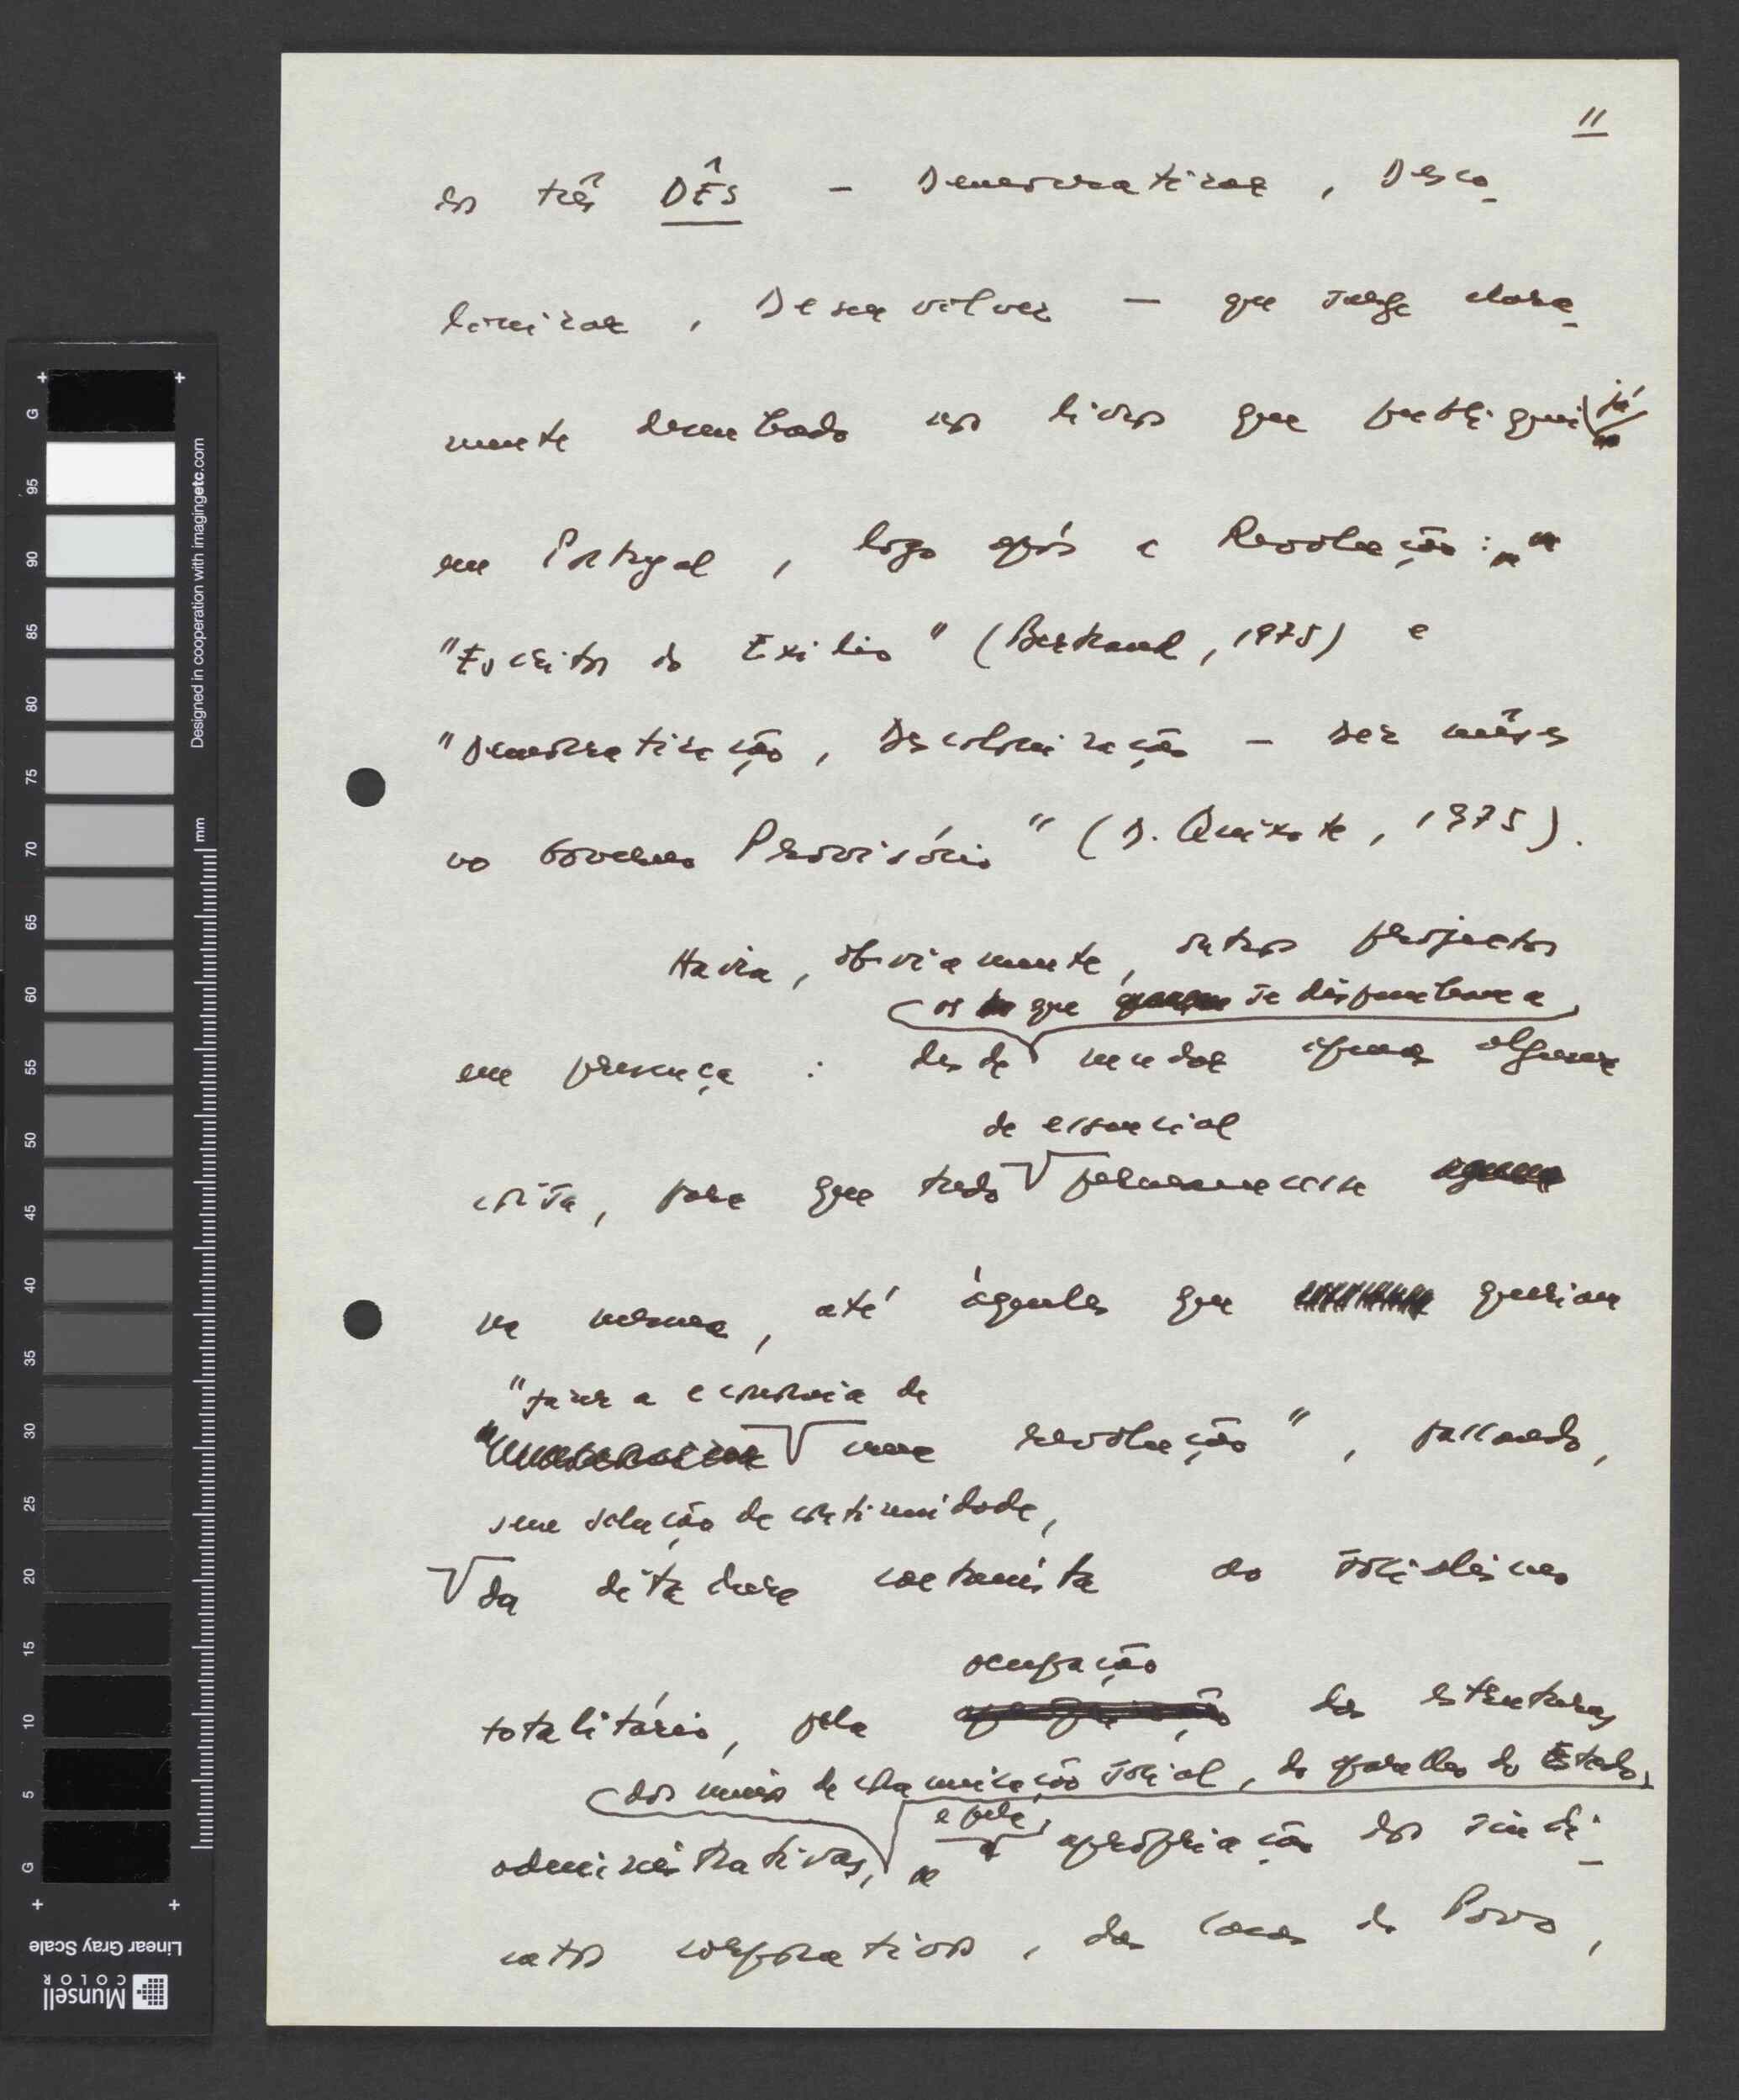 11
os três DÊS — Democratizar, Desco-
lonizar, Desenvolver — que surge clara-
mente desenhado nos livros que publiquei já
em Portugal, logo após a Revolução:
"Escritos do Exílio" (Bertrand, 1975) e
"Democratização, Descolonização — Dez mêses
no Governo Provisório" (D. Quixote, 1975).
Havia, obviamente, outros projectos
os que se dispunham a
em presença: desde mudar apenas alguma
de essencial
coisa, para que tudo permanecesse
na mesma, até àqueles que queriam
"fazer a economia de
uma revolução", passando,
sem solução de continuidade,
da ditadura caetanista ao socialismo
ocupação
totalitário, pela das estruturas
dos meios de comunicação social, do aparelho do Estado,
e pela
administrativas, apropriação dos sindi-
catos corporativos, das Casas do Povo,
G 95 90 85 80 75 70 65 60 55 50 45 40 35 30 25 20 15 10 5 G
mm
Designed in cooperation with imagingetc.com
Linear Gray Scale
Munsell
COLOR